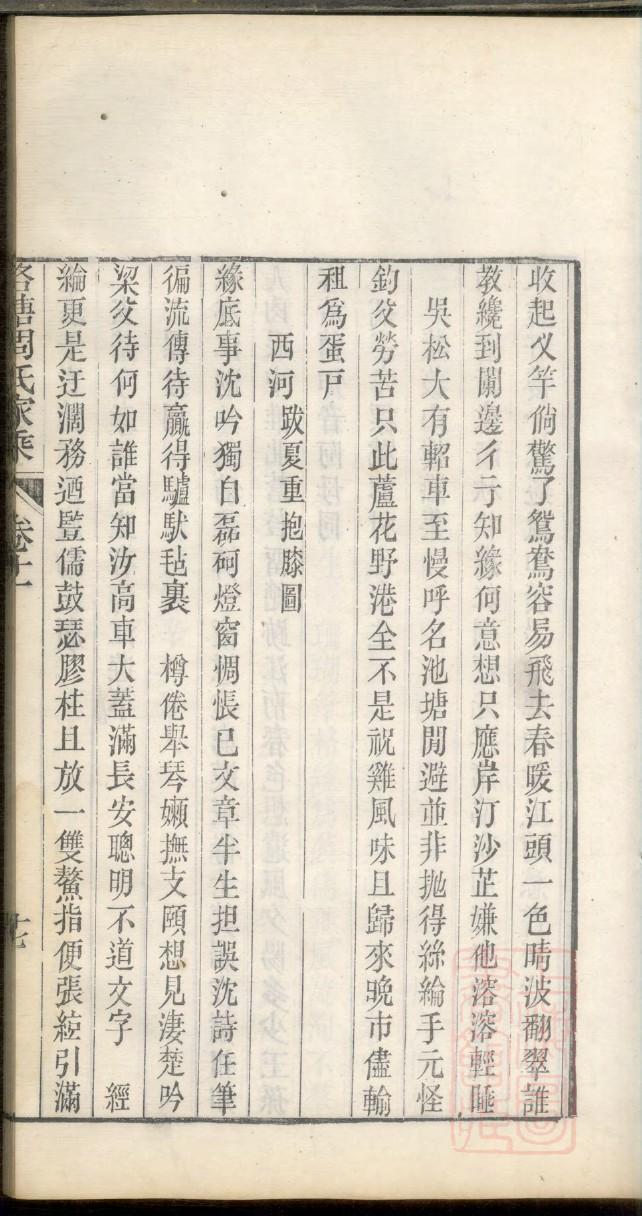 收起乂竿倘驚了鴛鴦容易飛去春暖江頭一色晴波翻翠誰
教纔到闌邊彳亍知緣何意想只應岸汀沙芷嫌他溶溶輕睡
吳松大有軺車至慢呼名池塘閒避並非抛得絲綸手元怪
釣父勞苦只此蘆花野港全不是祝雞風味且歸來晚市儘輸
租爲蛋戸
西河 跋夏重抱膝圖
緣底事沈吟獨自磊砢燈窗惆悵巳文章半生担誤沈詩任筆
徧流傳待贏得驢馱毡裹 樽倦舉琴嬾撫支頤想見淒楚吟
梁父待何如誰當知汝高車大蓋滿長安聰明不道文字 經
綸更是迂濶務迺豎儒鼓瑟膠柱且放一雙鰲指便張絃引滿
塘周氏家乘 卷十一 十七